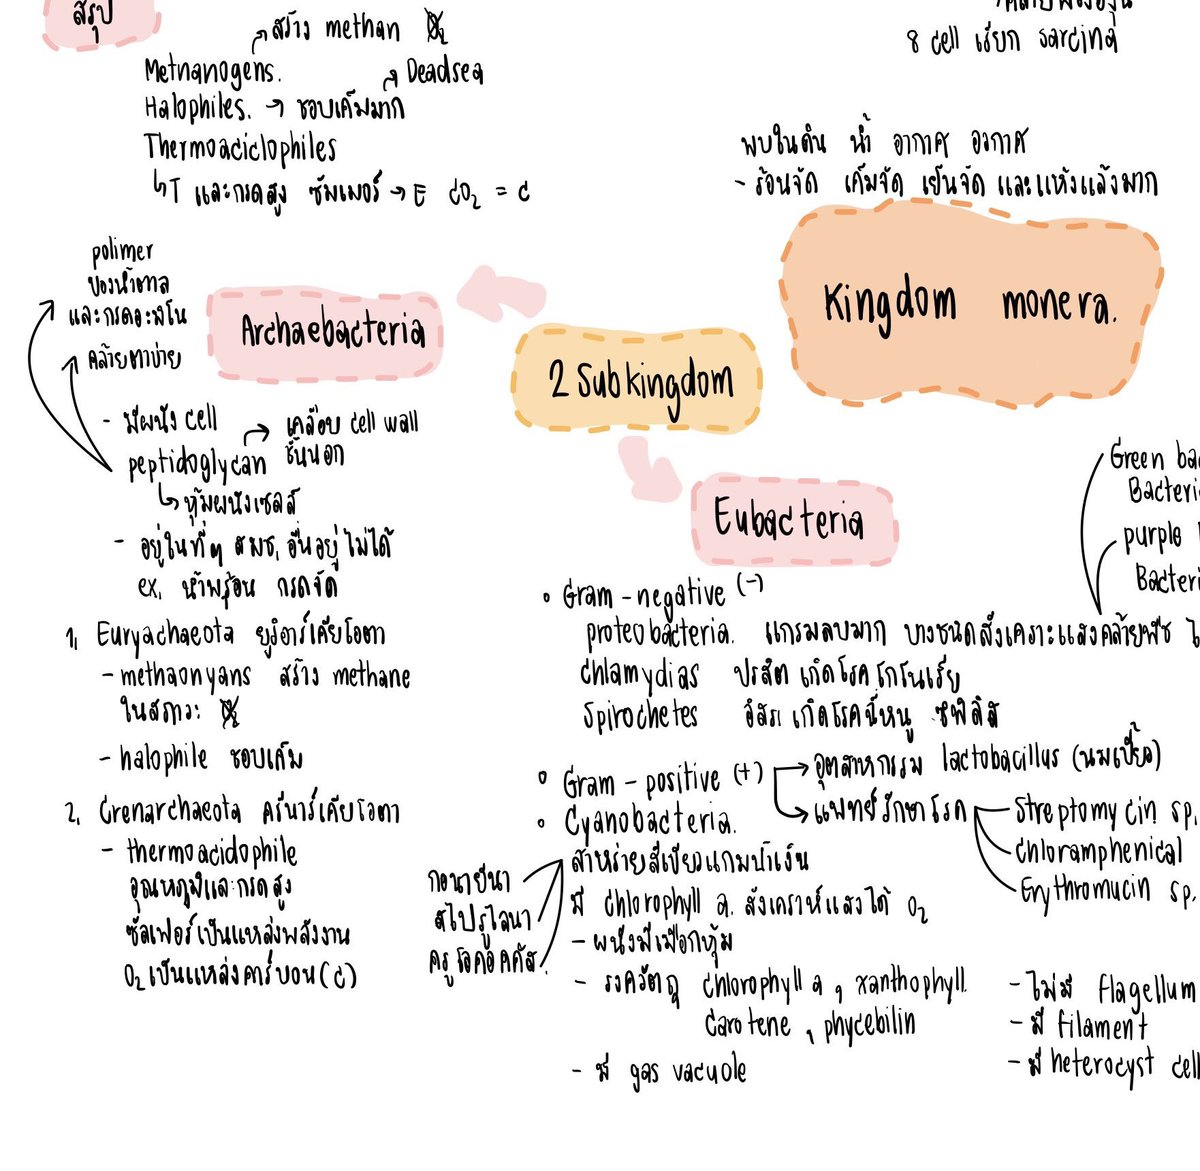 สรุป
สร้าง methan O₂
Metnanogens.
Deadsea
Halophiles. → ชอบเค็มมาก
Thermoaciclophiles
T และกรดสูง ซัมเมอร์ → E CO₂ = C
8 cell เรียก sarcina
พบในดิน น้ำ อากาศ อวกาศ
- ร้อนจัด เค็มจัด เย็นจัด และแห้งแล้งมาก
Kingdom monera.
2 Subkingdom
Archaebacteria
polimer
ของน้ำตาล
และกรดอะมิโน
คล้ายตาข่าย
- มีผนัง cell
peptidoglycan → เคลือบ cell wall
ชั้นนอก
หุ้มผนังเซลล์
- อยู่ในที่ๆ สมช. อื่นอยู่ไม่ได้
ex. น้ำพุร้อน กรดจัด
1. Euryachaeota ยูริอาร์เคียโอตา
- methaonyans สร้าง methane
ในสภาวะ O₂
- halophile ชอบเค็ม
2. Crenarchaeota ครีนาร์เคียโอตา
- thermoacidophile
อุณหภูมิและกรดสูง
ซัลเฟอร์เป็นแหล่งพลังงาน
O₂ เป็นแหล่งคาร์บอน (C)
Eubacteria
Green bac
Bacteri
purple
Bacteri
• Gram-negative (-)
proteobacteria. แกรมลบมาก บางชนิดสังเคราะแสงคล้ายพืช
chlamydias ปรสิต เกิดโรคโกโนเรีย
Spirochetes อิสระ เกิดโรคฉี่หนู ซิฟิลิส
• Gram-positive (+) → อุตสาหกรรม lactobacillus (นมเปรี้ยว)
→ แพทย์รักษาโรค
Streptomycin sp.
chloramphenical
Erythromucin sp.
• Cyanobacteria.
สาหร่ายสีเขียวแกมน้ำเงิน
กอนายีนา
สไปรูไลนา
ครูโอคอคคัส
มี chlorophyll a. สังเคราห์แสงได้ O₂
- ผนังมีเมือกหุ้ม
- รงควัตถุ chlorophyll a, xanthophyll
carotene, phycebilin
- มี gas vacuole
- ไม่มี flagellum
- มี filament
- มี heterocyst cell